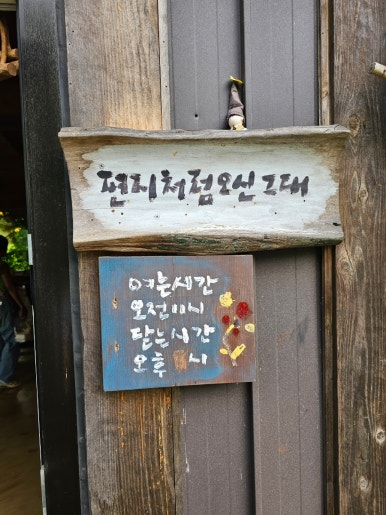 편지처럼오신그대
여는시간
오전11시
닫는시간
오후 시